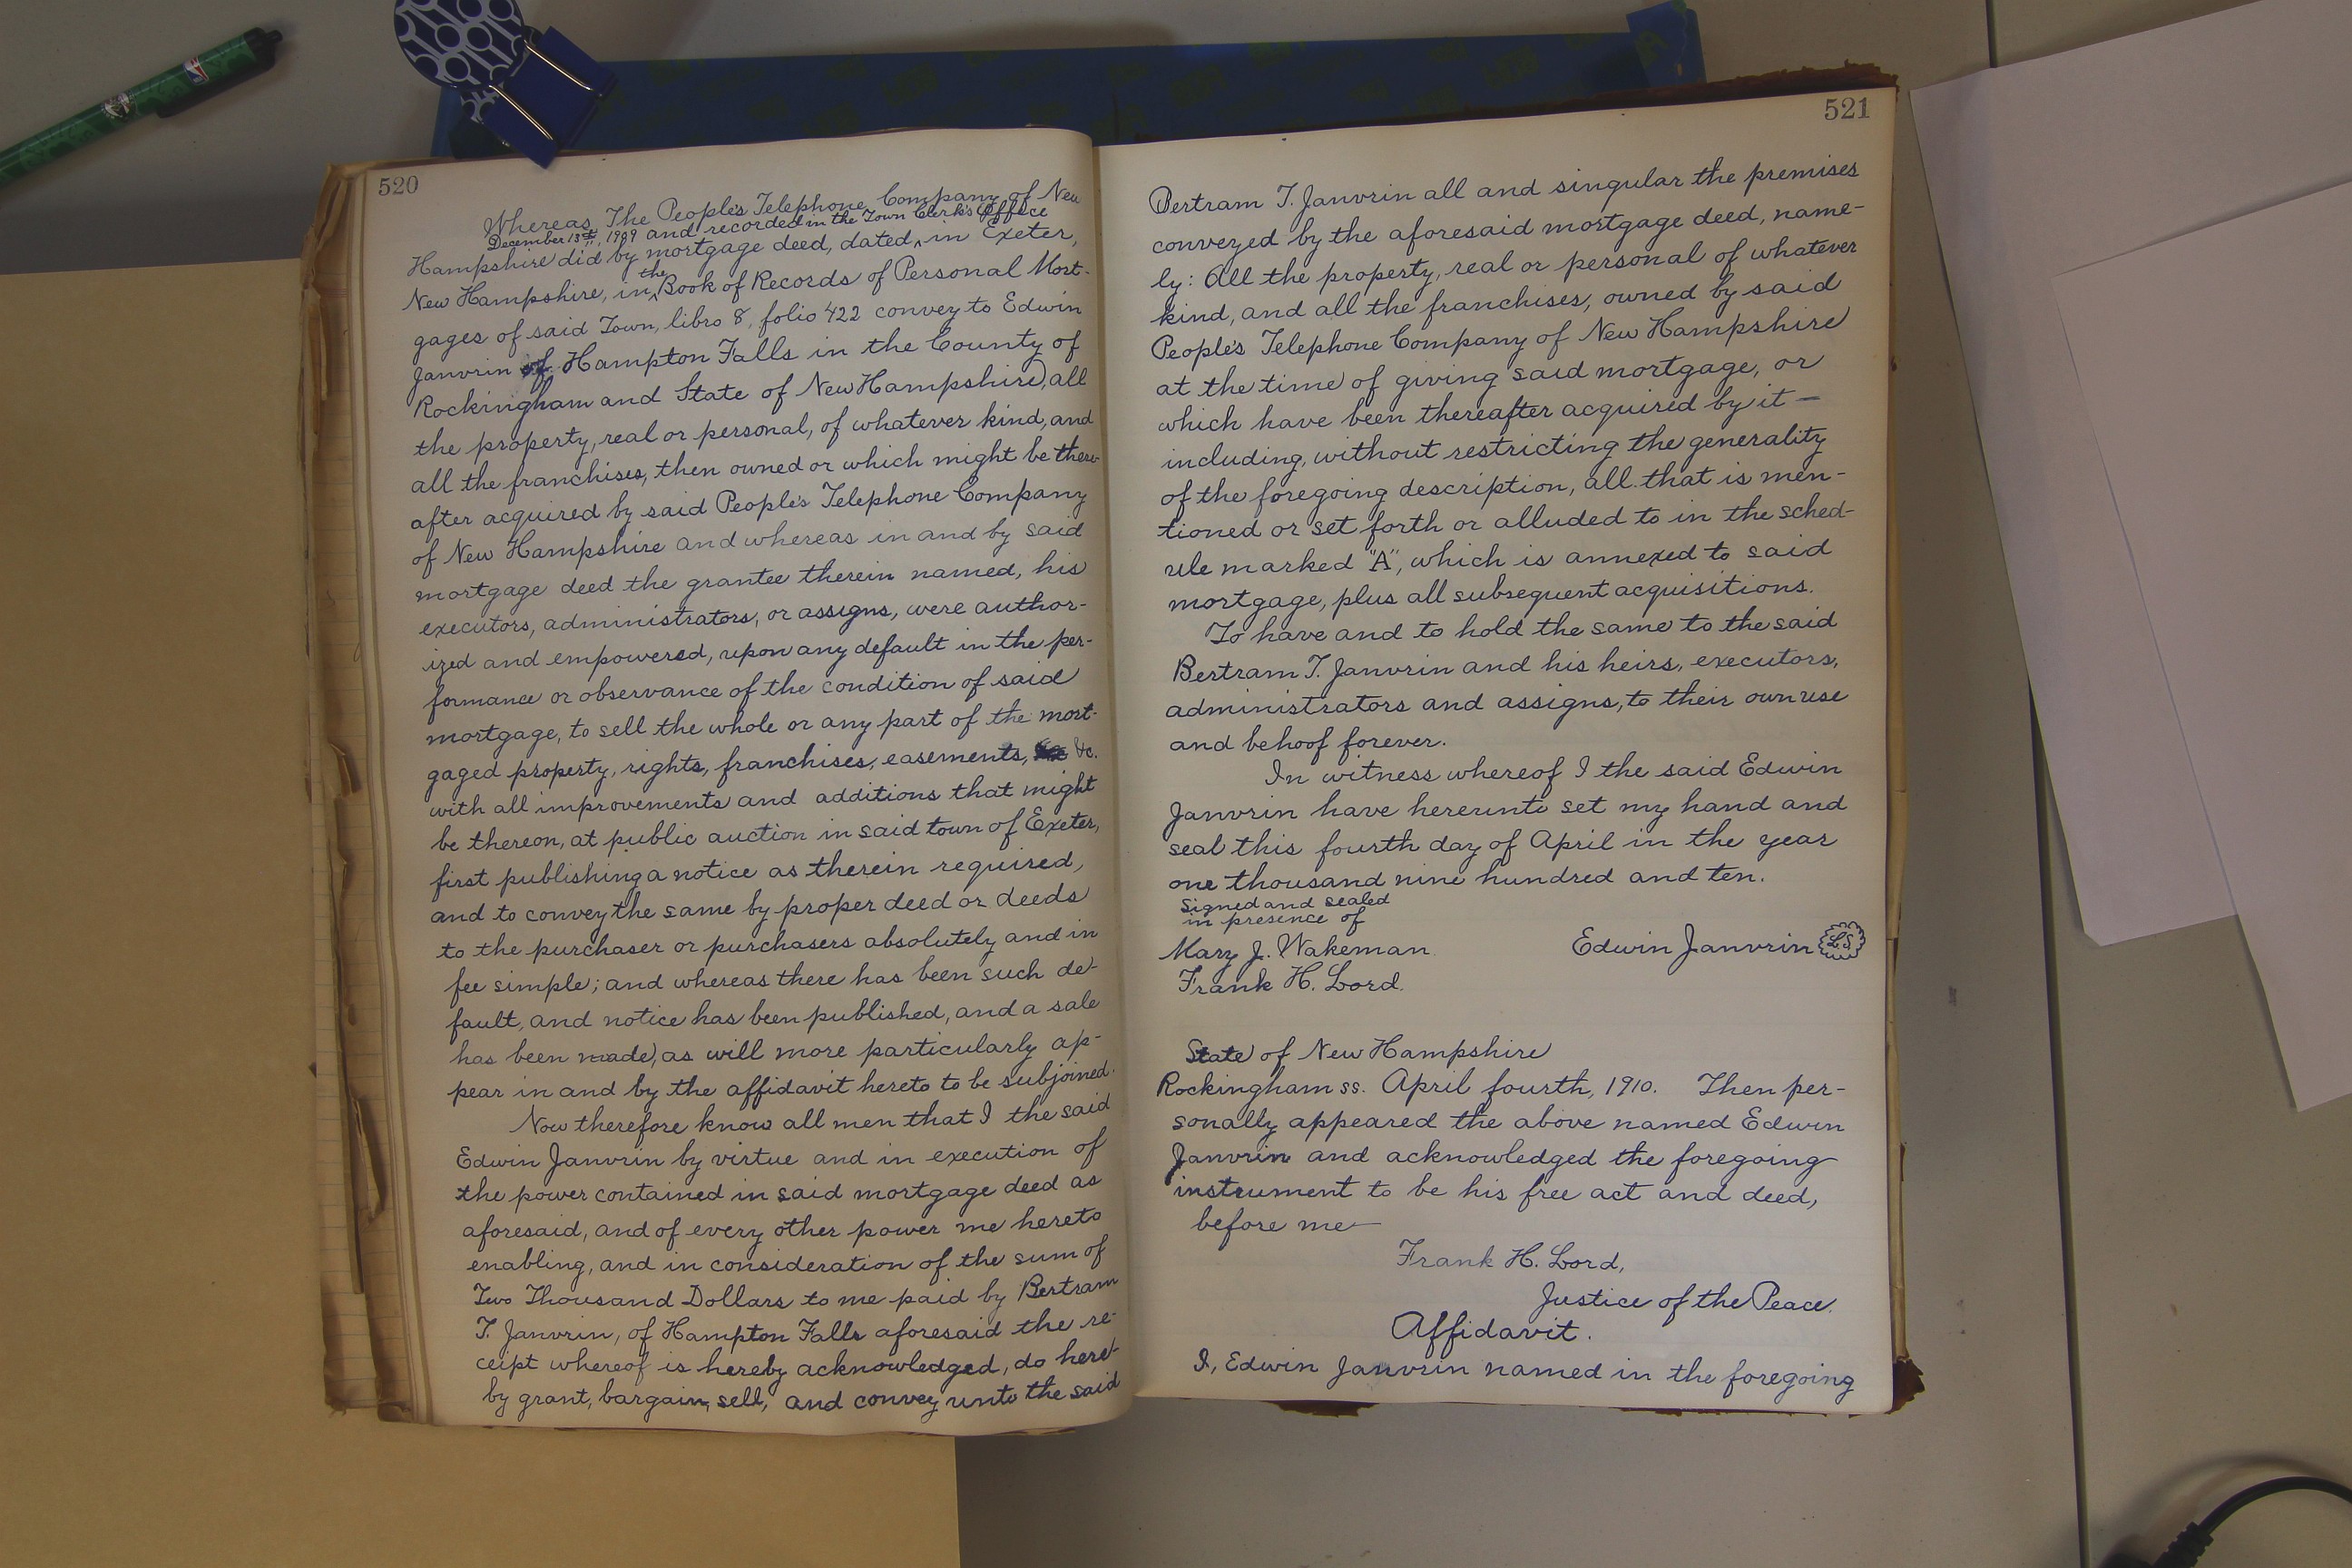 520
Whereas, The People's Telephone Company of New
December 13th, 1909 and recorded in the Town Clerk's Office
Hampshire did by mortgage deed, dated ^ in Exeter,
the
New Hampshire, in ^ Book of Records of Personal Mort-
gages of said Town, libro 8, folio 422 convey to Edwin
Janvrin of Hampton Falls in the County of
Rockingham and State of New Hampshire, all
the property, real or personal, of whatever kind, and
all the franchises, then owned or which might be there
after acquired by said People's Telephone Company
of New Hampshire and whereas in and by said
mortgage deed the grantee therein named, his
executors, administrators, or assigns, were author-
ized and empowered, upon any default in the per-
formance or observance of the condition of said
mortgage, to sell the whole or any part of the mort-
gaged property, rights, franchises, easements, &c.
with all improvements and additions that might
be thereon, at public auction in said town of Exeter,
first publishing a notice as therein required,
and to convey the same by proper deed or deeds
to the purchaser or purchasers absolutely and in
fee simple; and whereas there has been such de-
fault, and notice has been published, and a sale
has been made, as will more particularly ap-
pear in and by the affidavit hereto to be subjoined.
Now therefore know all men that I the said
Edwin Janvrin by virtue and in execution of
the power contained in said mortgage deed as
aforesaid, and of every other power me hereto
enabling, and in consideration of the sum of
Two Thousand Dollars to me paid by Bertram
T. Janvrin, of Hampton Falls aforesaid the re-
ceipt whereof is hereby acknowledged, do here-
by grant, bargain, sell, and convey unto the said
521
Bertram T. Janvrin all and singular the premises
conveyed by the aforesaid mortgage deed, name-
ly: All the property, real or personal of whatever
kind, and all the franchises, owned by said
People's Telephone Company of New Hampshire
at the time of giving said mortgage, or
which have been thereafter acquired by it —
including, without restricting the generality
of the foregoing description, all that is men-
tioned or set forth or alluded to in the sched-
ule marked "A", which is annexed to said
mortgage, plus all subsequent acquisitions.
To have and to hold the same to the said
Bertram T. Janvrin and his heirs, executors,
administrators and assigns, to their own use
and behoof forever.
In witness whereof I the said Edwin
Janvrin have hereunto set my hand and
seal this fourth day of April in the year
one thousand nine hundred and ten.
Signed and sealed
in presence of
Mary J. Wakeman. Edwin Janvrin L.S.
Frank H. Lord.
State of New Hampshire
Rockingham ss. April fourth, 1910. Then per-
sonally appeared the above named Edwin
Janvrin and acknowledged the foregoing
instrument to be his free act and deed,
before me —
Frank H. Lord,
Justice of the Peace.
Affidavit.
I, Edwin Janvrin named in the foregoing